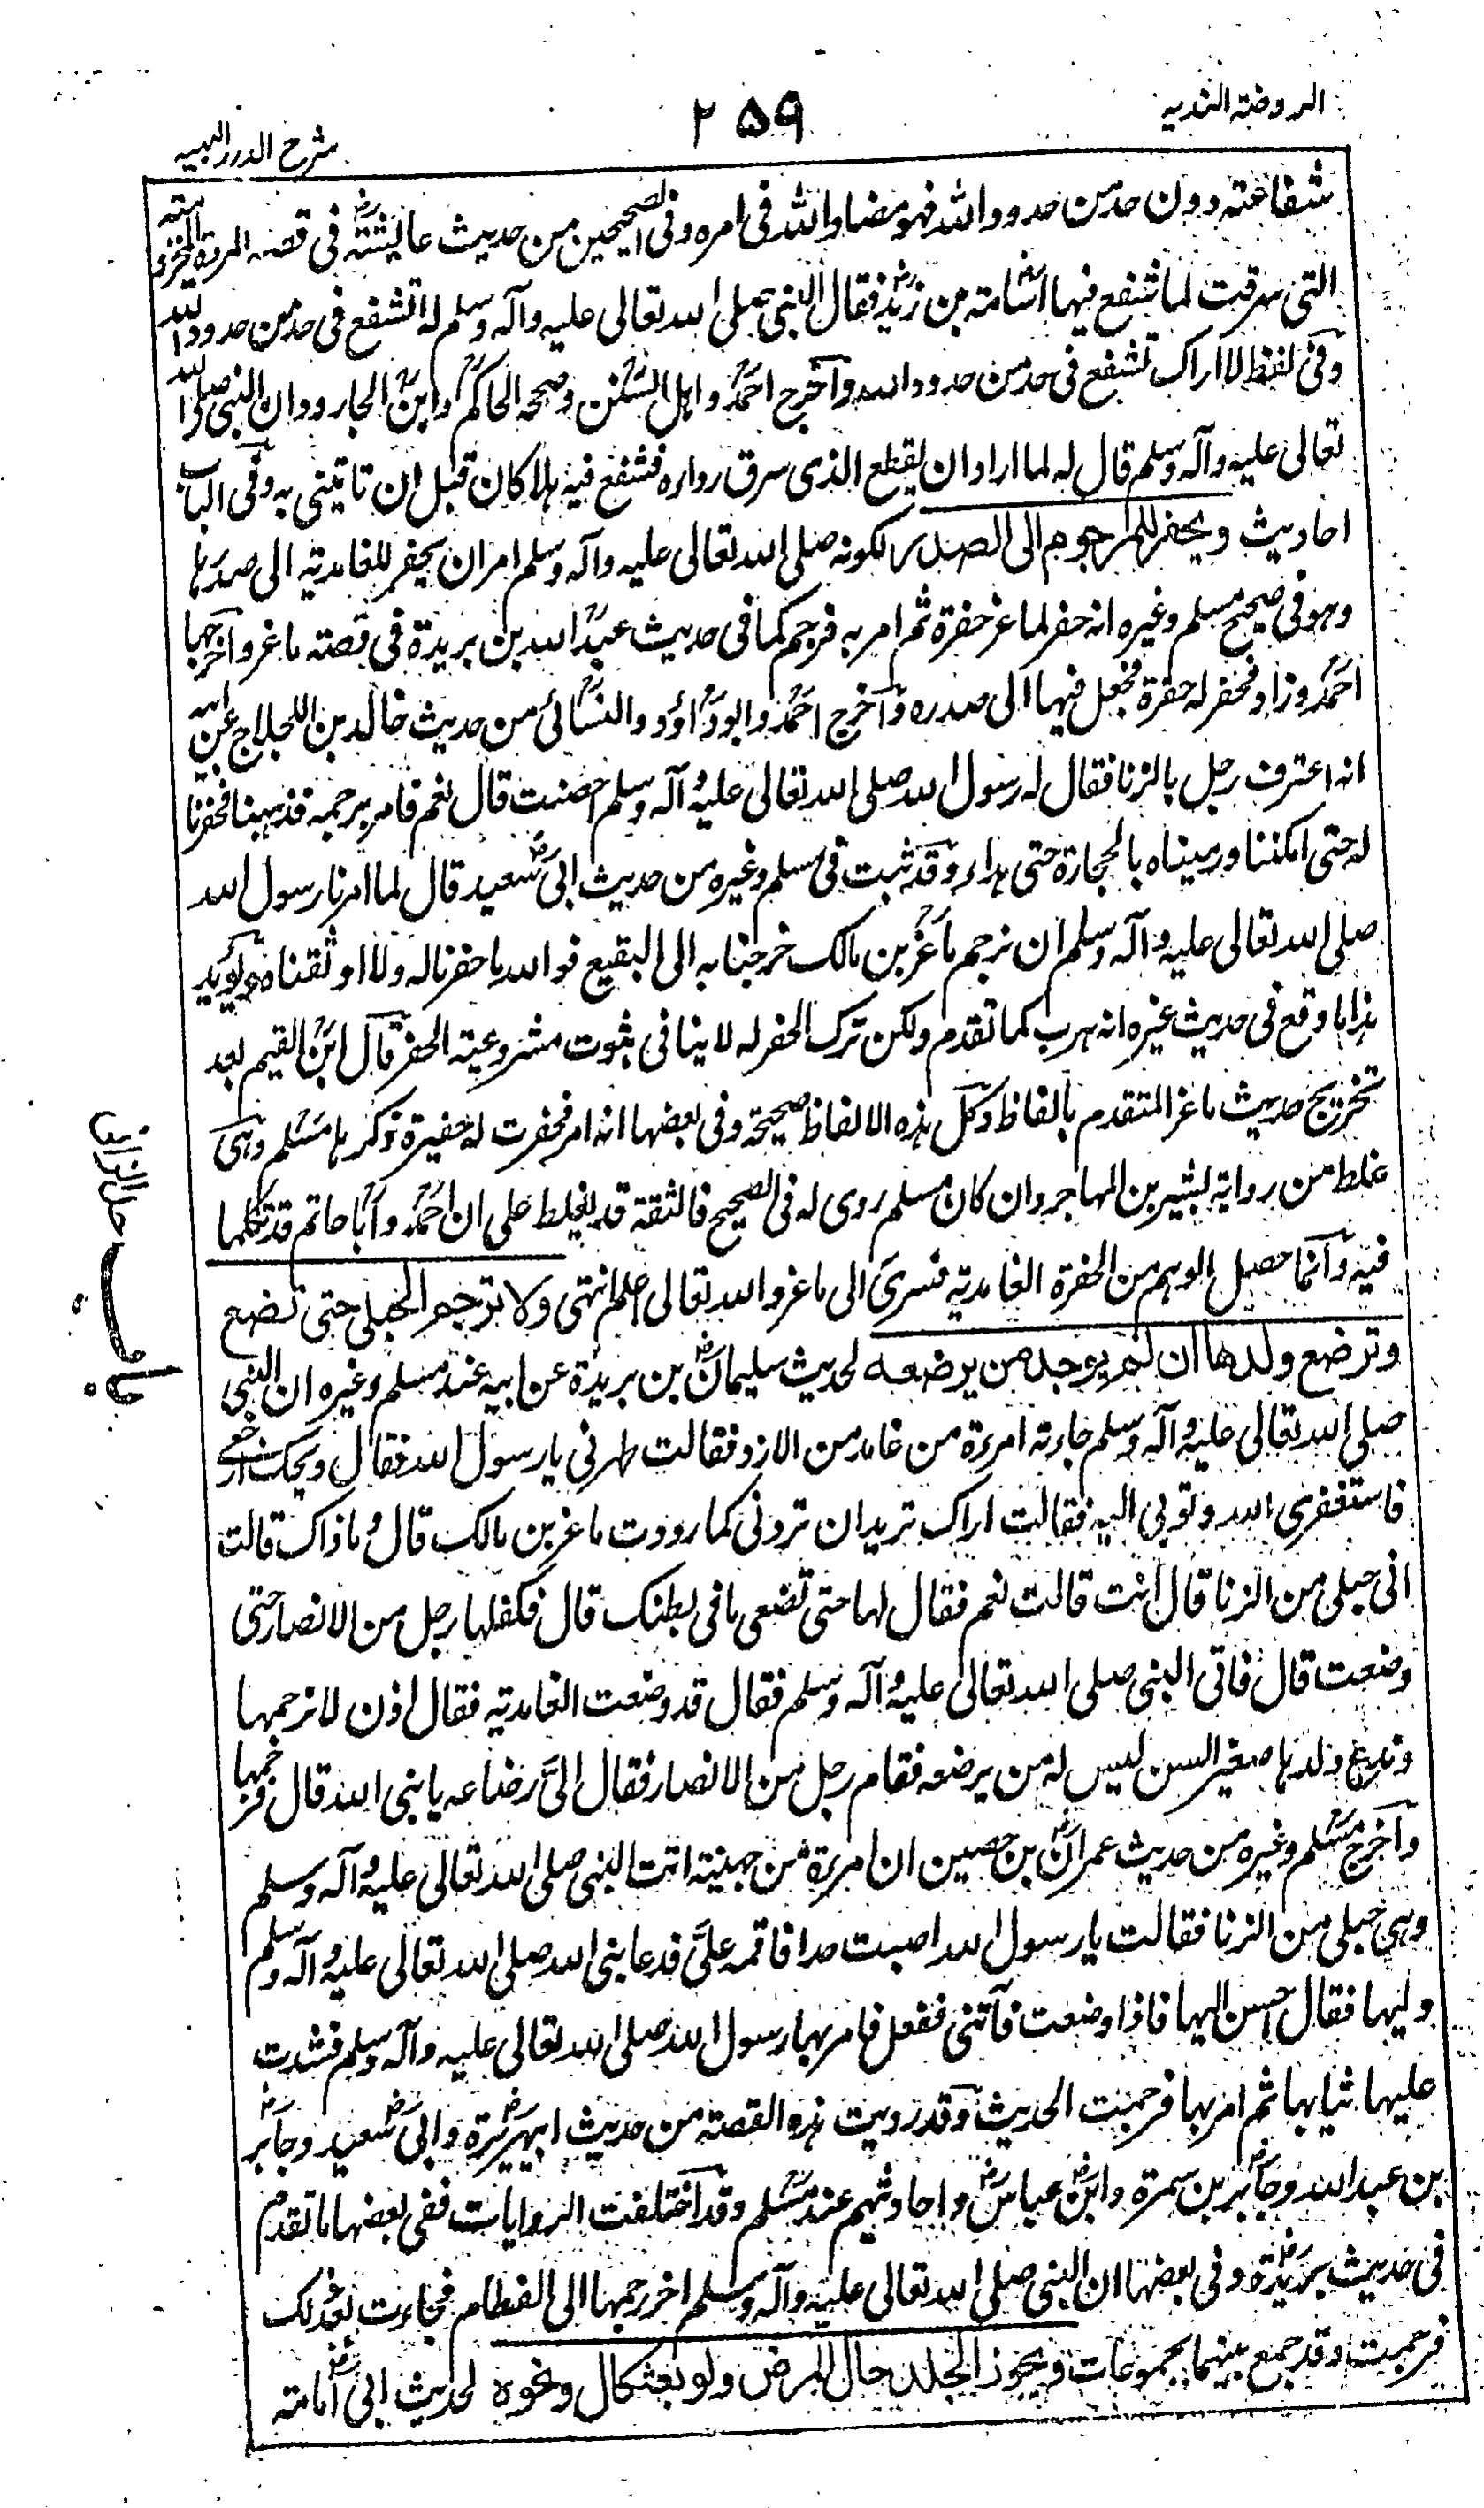 الروضة الندیه
۲۵۹
شرح الدرر البهیه
شفاعته دون حد من حدود الله فهو مضاد الله فی امره وفی الصحیحین من حدیث عایشة رض فی قصه المرءة المخزومیته
التی سرقت لما شفع فیها اسامة بن زید رض فقال النبی صلی الله تعالی علیه وآله وسلم له اتشفع فی حد من حدود الله
وفی لفظ لا اراک تشفع فی حد من حدود الله وآخرج احمد واهل السنن وصححه الحاکم وابن الجارود ان النبی صلی الله
تعالی علیه وآله وسلم قال له لما اراد ان یقطع الذی سرق رداءه فشفع فیه هلا کان قبل ان تاتینی به وفی الباب
احادیث ویحفر للمرجوم الی الصدر لکونه صلی الله تعالی علیه وآله وسلم امر ان یحفر للغامدیة الی صدرها
وهو فی صحیح مسلم وغیره انه حفر لماعز حفرة ثم امر به فرجم کما فی حدیث عبد الله بن بریدة فی قصته ماعز واخرجها
احمد وزاد فحفر له حفرة فجعل فیها الی صدره وآخرج احمد وابو داؤد والنسائی من حدیث خالد بن اللجلاج عن ابیه
انه اعترف رجل بالزنا فقال له رسول الله صلی الله تعالی علیه وآله وسلم احصنت قال نعم فامر برجمه فذهبنا فحفرنا
له حتی امکننا ورمیناه بالحجارة حتی هدا وقد ثبت فی مسلم وغیره من حدیث ابی سعید رض قال لما امرنا رسول الله
صلی الله تعالی علیه وآله وسلم ان نرجم ماعز بن مالک خرجنا به الی البقیع فوالله ما حفرنا له ولا اوثقناه ویؤید
هذا ما وقع فی حدیث غیره انه هرب کما تقدم ولکن ترک الحفر له لا ینافی ثبوت مشروعیة الحفر قال ابن القیم بعد
تخریج حدیث ماعز المتقدم بالفاظ وکل هذه الالفاظ صحیحة وفی بعضها انه امر فحفرت له حفیرة ذکرها مسلم وهی
غلط من روایة بشیر بن المهاجر وان کان مسلم روی له فی الصحیح فالثقة قد یغلط علی ان احمد وابا حاتم قد تکلما
فیه وآنما حصل الوهم من الحفرة الغامدیة فسری الی ماعز والله تعالی اعلم انتهی ولا ترجم الحبلی حتی تضع
وترضع ولدها ان لم یوجد من یرضعه لحدیث سلیمان رض بن بریدة عن ابیه عند مسلم وغیره ان النبی
صلی الله تعالی علیه وآله وسلم جاءته امرءة من غامد من الازد فقالت طهرنی یا رسول الله فقال ویحک ارجعی
فاستغفری الله وتوبی الیه فقالت اراک ترید ان تردنی کما رددت ماعز بن مالک قال وما ذاک قالت
انی حبلی من الزنا قال انت قالت نعم فقال لها حتی تضعی ما فی بطنک قال فکفلها رجل من الانصار حتی
وضعت قال فاتی النبی صلی الله تعالی علیه وآله وسلم فقال قد وضعت الغامدیة فقال اذن لا نرجمها
وندع ولدها صغیر السن لیس له من یرضعه فقام رجل من الانصار فقال الیّ رضاعه یا نبی الله قال فرجمها
وآخرج مسلم وغیره من حدیث عمران رض بن حصین ان امرءة من جهینة اتت النبی صلی الله تعالی علیه وآله وسلم
وهی حبلی من الزنا فقالت یا رسول الله اصبت حدا فاقمه علیّ فدعا نبی الله صلی الله تعالی علیه وآله وسلم
ولیها فقال احسن الیها فاذا وضعت فآتنی ففعل فامر بها رسول الله صلی الله تعالی علیه وآله وسلم فشدت
علیها ثیابها ثم امر بها فرجمت الحدیث وقد رویت هذه القصة من حدیث ابیهریرة رض وابی سعید رض وجابر رض
بن عبد الله وجابر رض بن سمرة وابن رض عباس رض واحادیثهم عند مسلم وقد آختلفت الروایات ففی بعضها ما تقدم
فی حدیث بریدة رض وفی بعضها ان النبی صلی الله تعالی علیه وآله وسلم اخر رجمها الی الفطام فجاءت بعد ذلک
فرجمت وقد جمع بینهما بمجموعات ویجوز الجلد حال المرض ولو بعثکال ونحوه لحدیث ابی امامة رض
باب حد الزانی